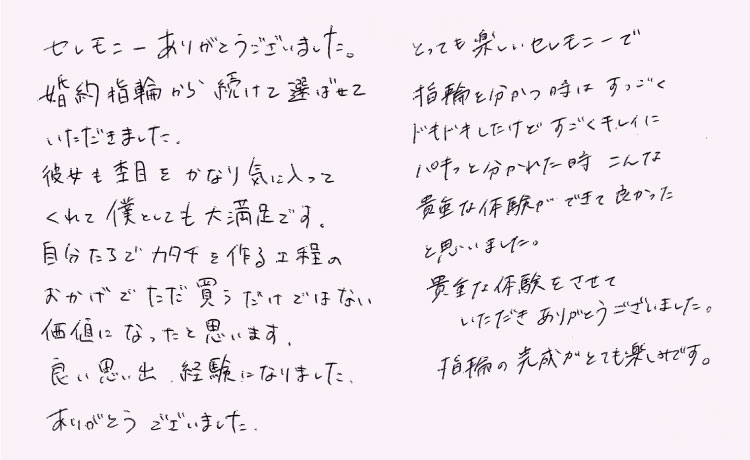 セレモニーありがとうございました。
婚約指輪から続けて選ばせて
いただきました.
彼女も杢目をかなり気に入って
くれて僕としても大満足です.
自分たちでカタチを作る工程の
おかげでただ買うだけではない
価値になったと思います.
良い思い出.経験になりました.
ありがとうございました.
とっても楽しいセレモニーで
指輪を分かつ時はすっごく
ドキドキしたけどすごくキレイに
パキっと分かれた時こんな
貴重な体験ができて良かった
と思いました。
貴重な体験をさせて
いただきありがとうございました。
指輪の完成がとても楽しみです。